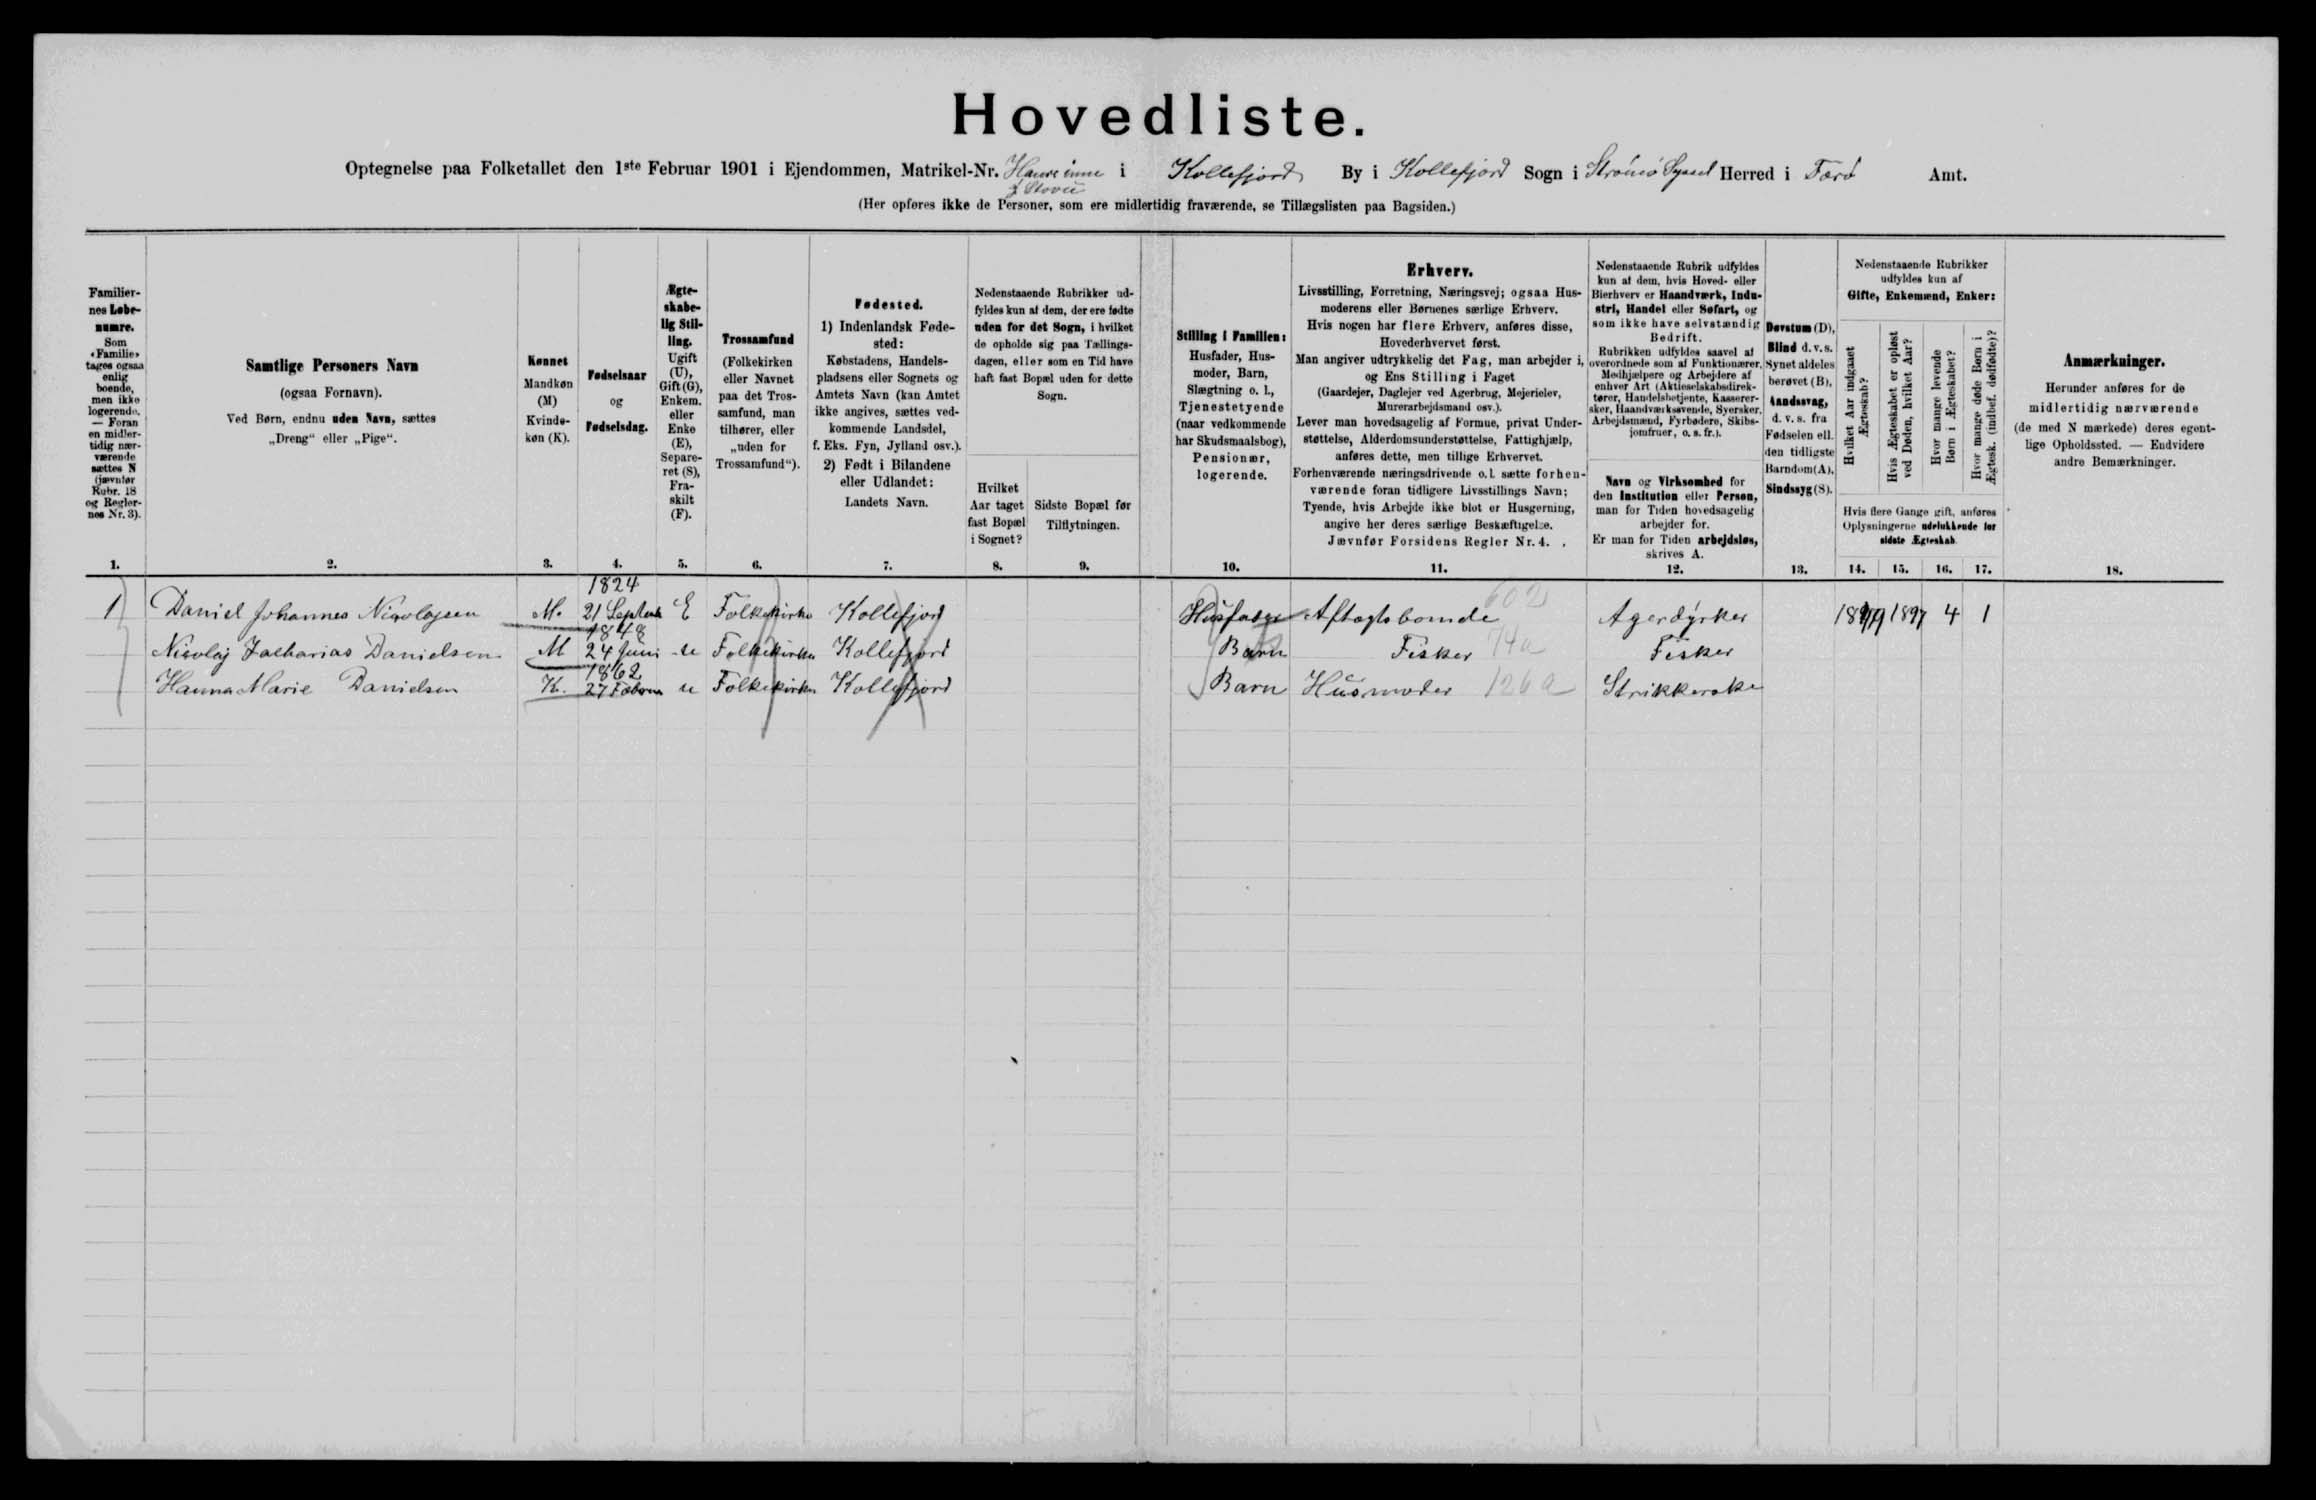 Hovedliste.
Optegnelse paa Folketallet den 1ste Februar 1901 i Ejendommen, Matrikel-Nr. inne i Kollefjord By i Kollefjord Sogn i Strömö Syssel Herred i Færö Amt.
Stovu
(Her opføres ikke de Personer, som ere midlertidig fraværende, se Tillægslisten paa Bagsiden.)
Familiernes Løbenumre.
Som «Familie» tages ogsaa enlig boende, men ikke logerende. — Foran en midlertidig nærværende sættes N (jævnfør Rubr. 18 og Reglernes Nr. 3).
Samtlige Personers Navn
(ogsaa Fornavn).
Ved Børn, endnu uden Navn, sættes
„Dreng“ eller „Pige“.
Kønnet
Mandkøn (M)
Kvindekøn (K).
Fødselsaar
og
Fødselsdag.
Ægteskabelig Stilling.
Ugift (U), Gift (G), Enkem. eller Enke (E), Separeret (S), Fraskilt (F).
Trossamfund
(Folkekirken eller Navnet paa det Trossamfund, man tilhører, eller „uden for Trossamfund“).
Fødested.
1) Indenlandsk Fødested:
Købstadens, Handelspladsens eller Sognets og Amtets Navn (kan Amtet ikke angives, sættes vedkommende Landsdel, f. Eks. Fyn, Jylland osv.).
2) Født i Bilandene eller Udlandet:
Landets Navn.
Nedenstaaende Rubrikker udfyldes kun af dem, der ere fødte uden for det Sogn, i hvilket de opholde sig paa Tællingsdagen, eller som en Tid have haft fast Bopæl uden for dette Sogn.
Hvilket Aar taget fast Bopæl i Sognet?
Sidste Bopæl før Tilflytningen.
Stilling i Familien:
Husfader, Husmoder, Barn, Slægtning o. l., Tjenestetyende (naar vedkommende har Skudsmaalsbog), Pensionær, logerende.
Erhverv.
Livsstilling, Forretning, Næringsvej; ogsaa Husmoderens eller Børnenes særlige Erhverv.
Hvis nogen har flere Erhverv, anføres disse, Hovederhvervet først.
Man angiver udtrykkelig det Fag, man arbejder i, og Ens Stilling i Faget
(Gaardejer, Daglejer ved Agerbrug, Mejerielev, Murerarbejdsmand osv.).
Lever man hovedsagelig af Formue, privat Understøttelse, Alderdomsunderstøttelse, Fattighjælp, anføres dette, men tillige Erhvervet.
Forhenværende næringsdrivende o. l. sætte forhenværende foran tidligere Livsstillings Navn;
Tyende, hvis Arbejde ikke blot er Husgerning, angive her deres særlige Beskæftigelse.
Jævnfør Forsidens Regler Nr. 4.
Nedenstaaende Rubrik udfyldes kun af dem, hvis Hoved- eller Bierhverv er Haandværk, Industri, Handel eller Søfart, og som ikke have selvstændig Bedrift.
Rubrikken udfyldes saavel af overordnede som af Funktionærer, Medhjælpere og Arbejdere af enhver Art (Aktieselskabsdirektører, Handelsbetjente, Kasserersker, Haandværkssvende, Syersker, Arbejdsmænd, Fyrbødere, Skibsjomfruer, o. s. fr.).
Navn og Virksomhed for den Institution eller Person, man for Tiden hovedsagelig arbejder for.
Er man for Tiden arbejdsløs, skrives A.
Døvstum (D), Blind d. v. s. Synet aldeles berøvet (B), Aandssvag, d. v. s. fra Fødselen ell. den tidligste Barndom (A), Sindssyg (S).
Nedenstaaende Rubrikker udfyldes kun af
Gifte, Enkemænd, Enker:
Hvilket Aar indgaaet Ægteskab?
Hvis Ægteskabet er opløst ved Døden, hvilket Aar?
Hvor mange levende Børn i Ægteskabet?
Hvor mange døde Børn i Ægtesk. (indbef. dødfødte)?
Hvis flere Gange gift, anføres Oplysningerne udelukkende for sidste Ægteskab.
Anmærkninger.
Herunder anføres for de midlertidig nærværende (de med N mærkede) deres egentlige Opholdssted. — Endvidere andre Bemærkninger.
1. 2. 3. 4. 5. 6. 7. 8. 9. 10. 11. 12. 13. 14. 15. 16. 17. 18.
1 Daniel Johannes Nicolajsen M. 1824 21 Septemb E Folkekirke Kollefjord Husfader Aftægtsbonde 602 Agerdyrker 1897 4 1
Nicolaj Zacharias Danielsen M 1848 24 Juni u Folkekirke Kollefjord Barn Fisker 74a Fisker
Hanna Marie Danielsen K. 1862 27 Febru u Folkekirke Kollefjord Barn Husmoder 126a Strikkerske